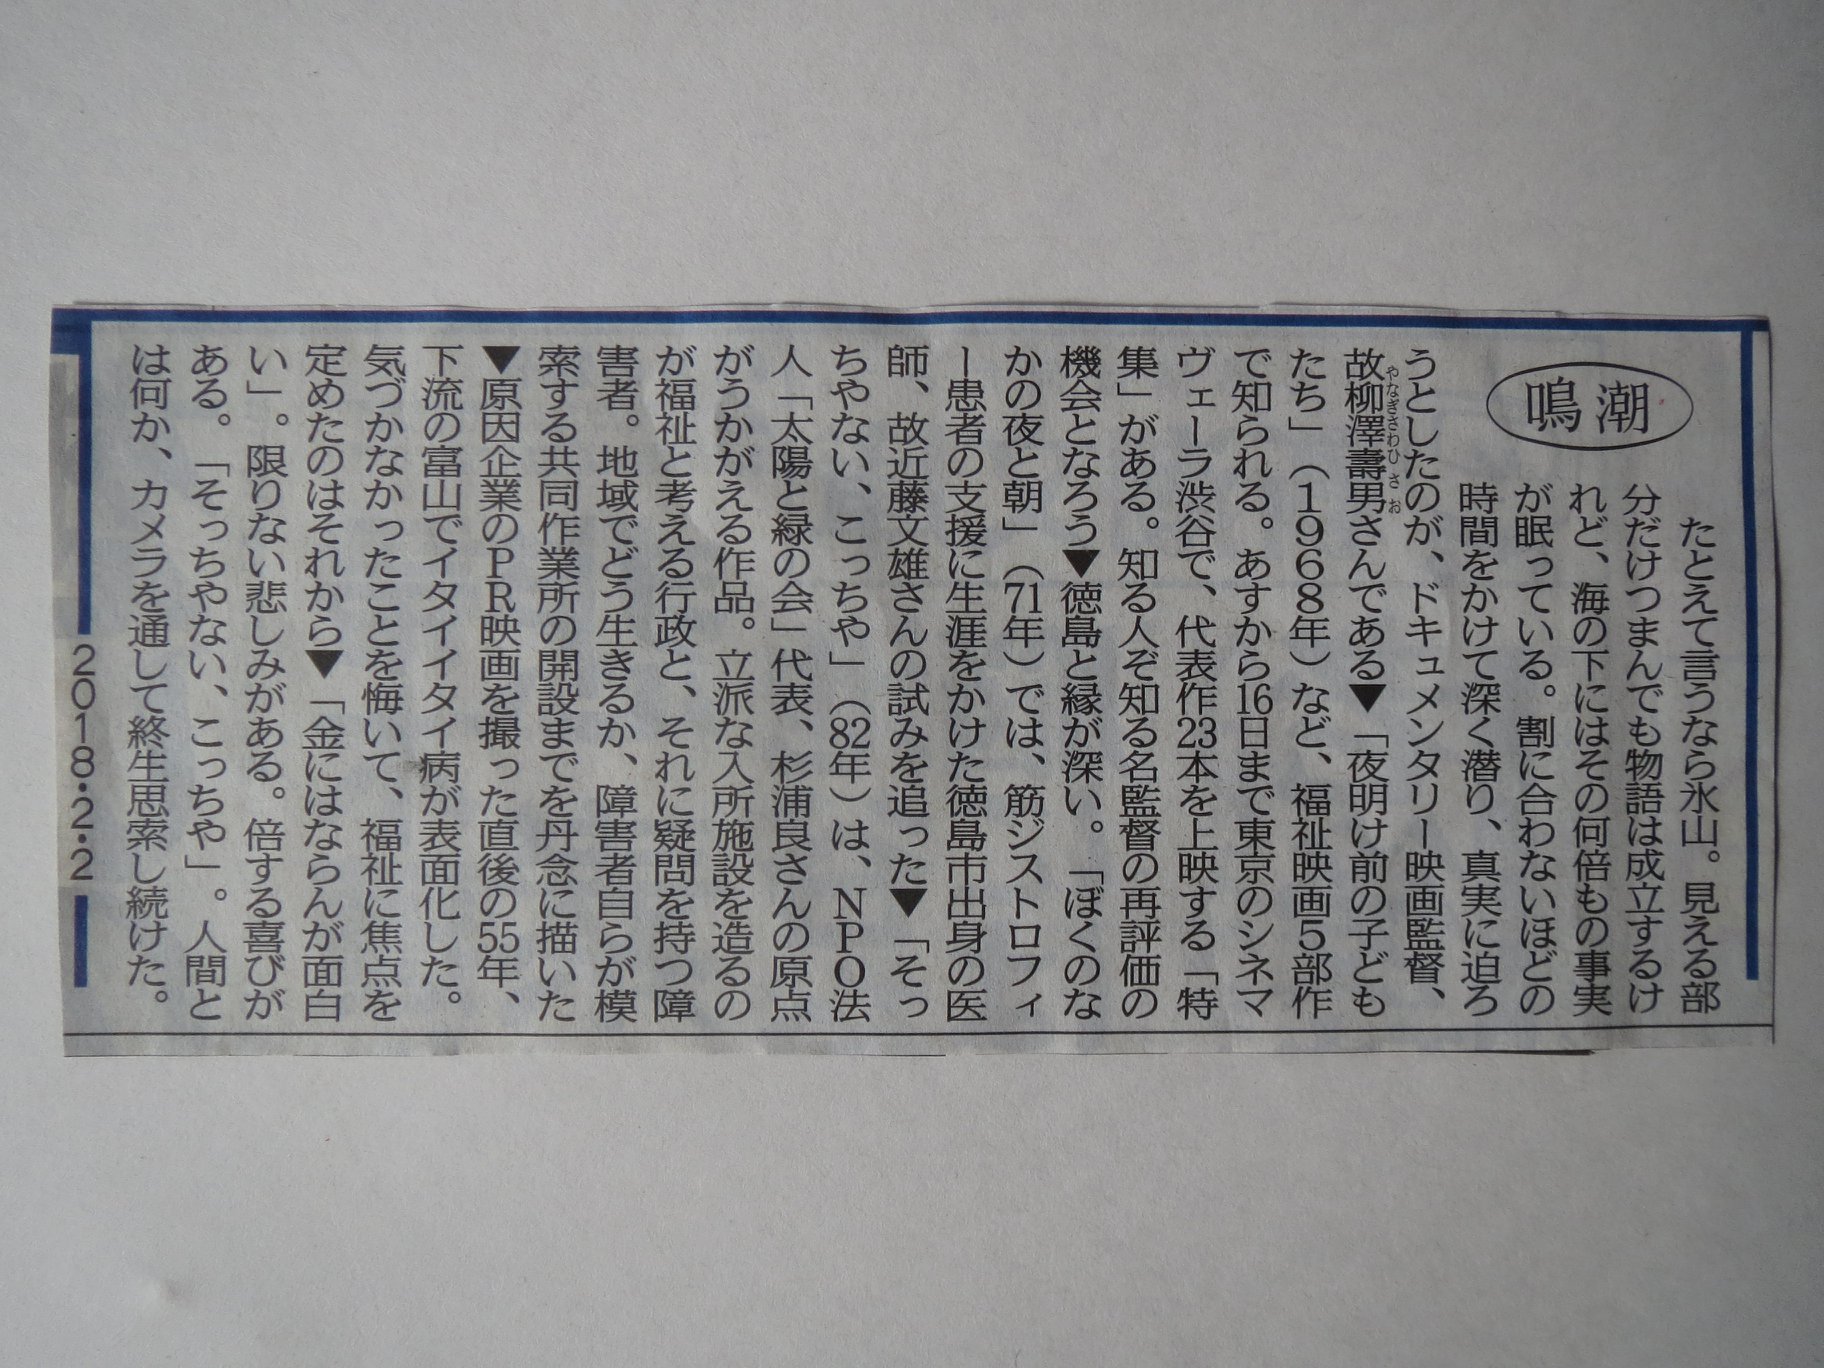 鳴潮
たとえて言うなら氷山。見える部
分だけつまんでも物語は成立するけ
れど、海の下にはその何倍もの事実
が眠っている。割に合わないほどの
時間をかけて深く潜り、真実に迫ろ
うとしたのが、ドキュメンタリー映画監督、
故柳澤壽男さんである▼「夜明け前の子ども
やなぎさわひさお
たち」（1968年）など、福祉映画5部作
で知られる。あすから16日まで東京のシネマ
ヴェーラ渋谷で、代表作23本を上映する「特
集」がある。知る人ぞ知る名監督の再評価の
機会となろう▼徳島と縁が深い。「ぼくのな
かの夜と朝」（71年）では、筋ジストロフィ
ー患者の支援に生涯をかけた徳島市出身の医
師、故近藤文雄さんの試みを追った▼「そっ
ちやない、こっちや」（82年）は、NPO法
人「太陽と緑の会」代表、杉浦良さんの原点
がうかがえる作品。立派な入所施設を造るの
が福祉と考える行政と、それに疑問を持つ障
害者。地域でどう生きるか、障害者自らが模
索する共同作業所の開設までを丹念に描いた
▼原因企業のPR映画を撮った直後の55年、
下流の富山でイタイイタイ病が表面化した。
気づかなかったことを悔いて、福祉に焦点を
定めたのはそれから▼「金にはならんが面白
い」。限りない悲しみがある。倍する喜びが
ある。「そっちやない、こっちや」。人間と
は何か、カメラを通して終生思索し続けた。
2018・2・2